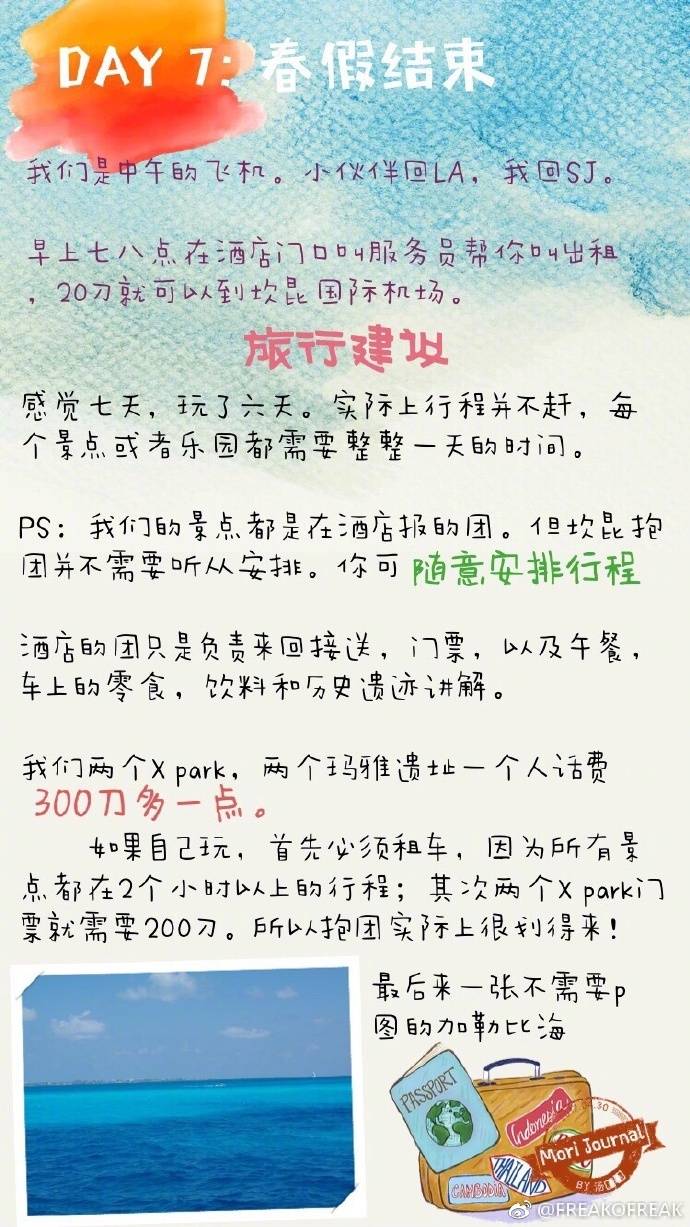 DAY 7: 春假结束
我们是中午的飞机。小伙伴回LA，我回SJ。
早上七八点在酒店门口叫服务员帮你叫出租
，20刀就可以到坎昆国际机场。
旅行建议
感觉七天，玩了六天。实际上行程并不赶，每
个景点或者乐园都需要整整一天的时间。
PS：我们的景点都是在酒店报的团。但坎昆抱
团并不需要听从安排。你可 随意安排行程
酒店的团只是负责来回接送，门票，以及午餐，
车上的零食，饮料和历史遗迹讲解。
我们两个X park，两个玛雅遗址一个人话费
300刀多一点。
如果自己玩，首先必须租车，因为所有景
点都在2个小时以上的行程；其次两个X park门
票就需要200刀。所以抱团实际上很划得来！
最后来一张不需要p
图的加勒比海
PASSPORT
Indonesia
THAILAND
CAMBODIA
Mori Journal
@FREAKOFREAK